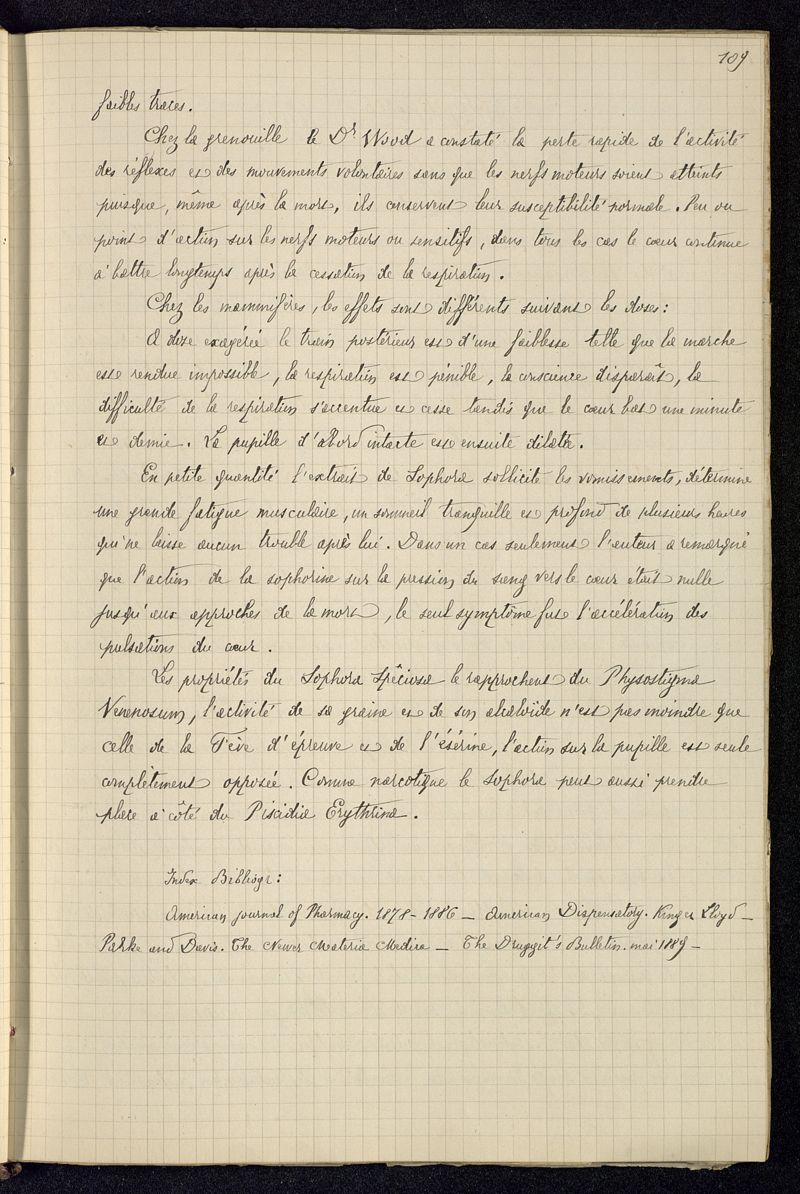 109
faibles traces.
Chez la grenouille le Dr Wood a constaté la perte rapide de l'activité
des réflexes et des mouvements volontaires sans que les nerfs moteurs soient atteints
puisque, même après la mort, ils conservent leur susceptibilité normale. Peu ou
point d'action sur les nerfs moteurs ou sensitifs, dans tous les cas le cœur continue
à battre longtemps après la cessation de la respiration.
Chez les mammifères, les effets sont différents suivant les doses:
A dose exagérée le train postérieur est d'une faiblesse telle que la marche
est rendue impossible, la respiration est pénible, la conscience disparaît, la
difficulté de la respiration s'accentue et cesse tandis que le cœur bat une minute
et demie. La pupille d'abord intacte est ensuite dilatée.
En petite quantité l'extrait de Sophora sollicite les vomissements, détermine
une grande fatigue musculaire, un sommeil tranquille et profond de plusieurs heures
qui ne laisse aucun trouble après lui. Dans un cas seulement l'auteur a remarqué
que l'action de la sophorine sur la pression du sang vers le cœur était nulle
jusqu'aux approches de la mort, le seul symptôme fut l'accélération des
pulsations du cœur.
Les propriétés du Sophora Spêciosa le rapprochent du Physostigma
Venenosum, l'activité de sa graine et de son alcaloïde n'est pas moindre que
celle de la Fève d'épreuve et de l'ésérine, l'action sur la pupille est seule
complètement opposée. Comme narcotique le Sophora peut aussi prendre
place à côté du Piscidia Erythrina.
Index Bibliogr:
American journal of Pharmacy. 1878-1886 — American Dispensatory. Kinger Lloyd —
Parke and Davis. The Newer Materia Medica — The Druggit's Bulletin. mai 1889 —